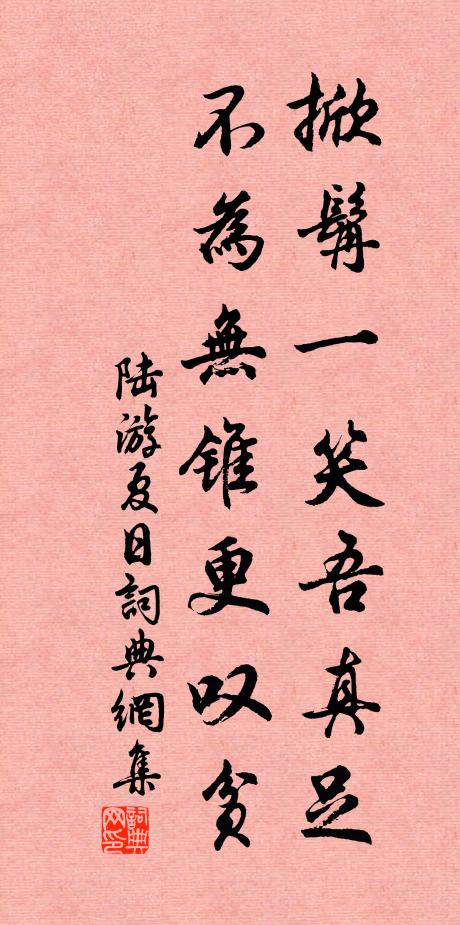 掀髯一笑吾真足
不為無錐更叹贫
陆游夏日詞典網集
詞典
网印